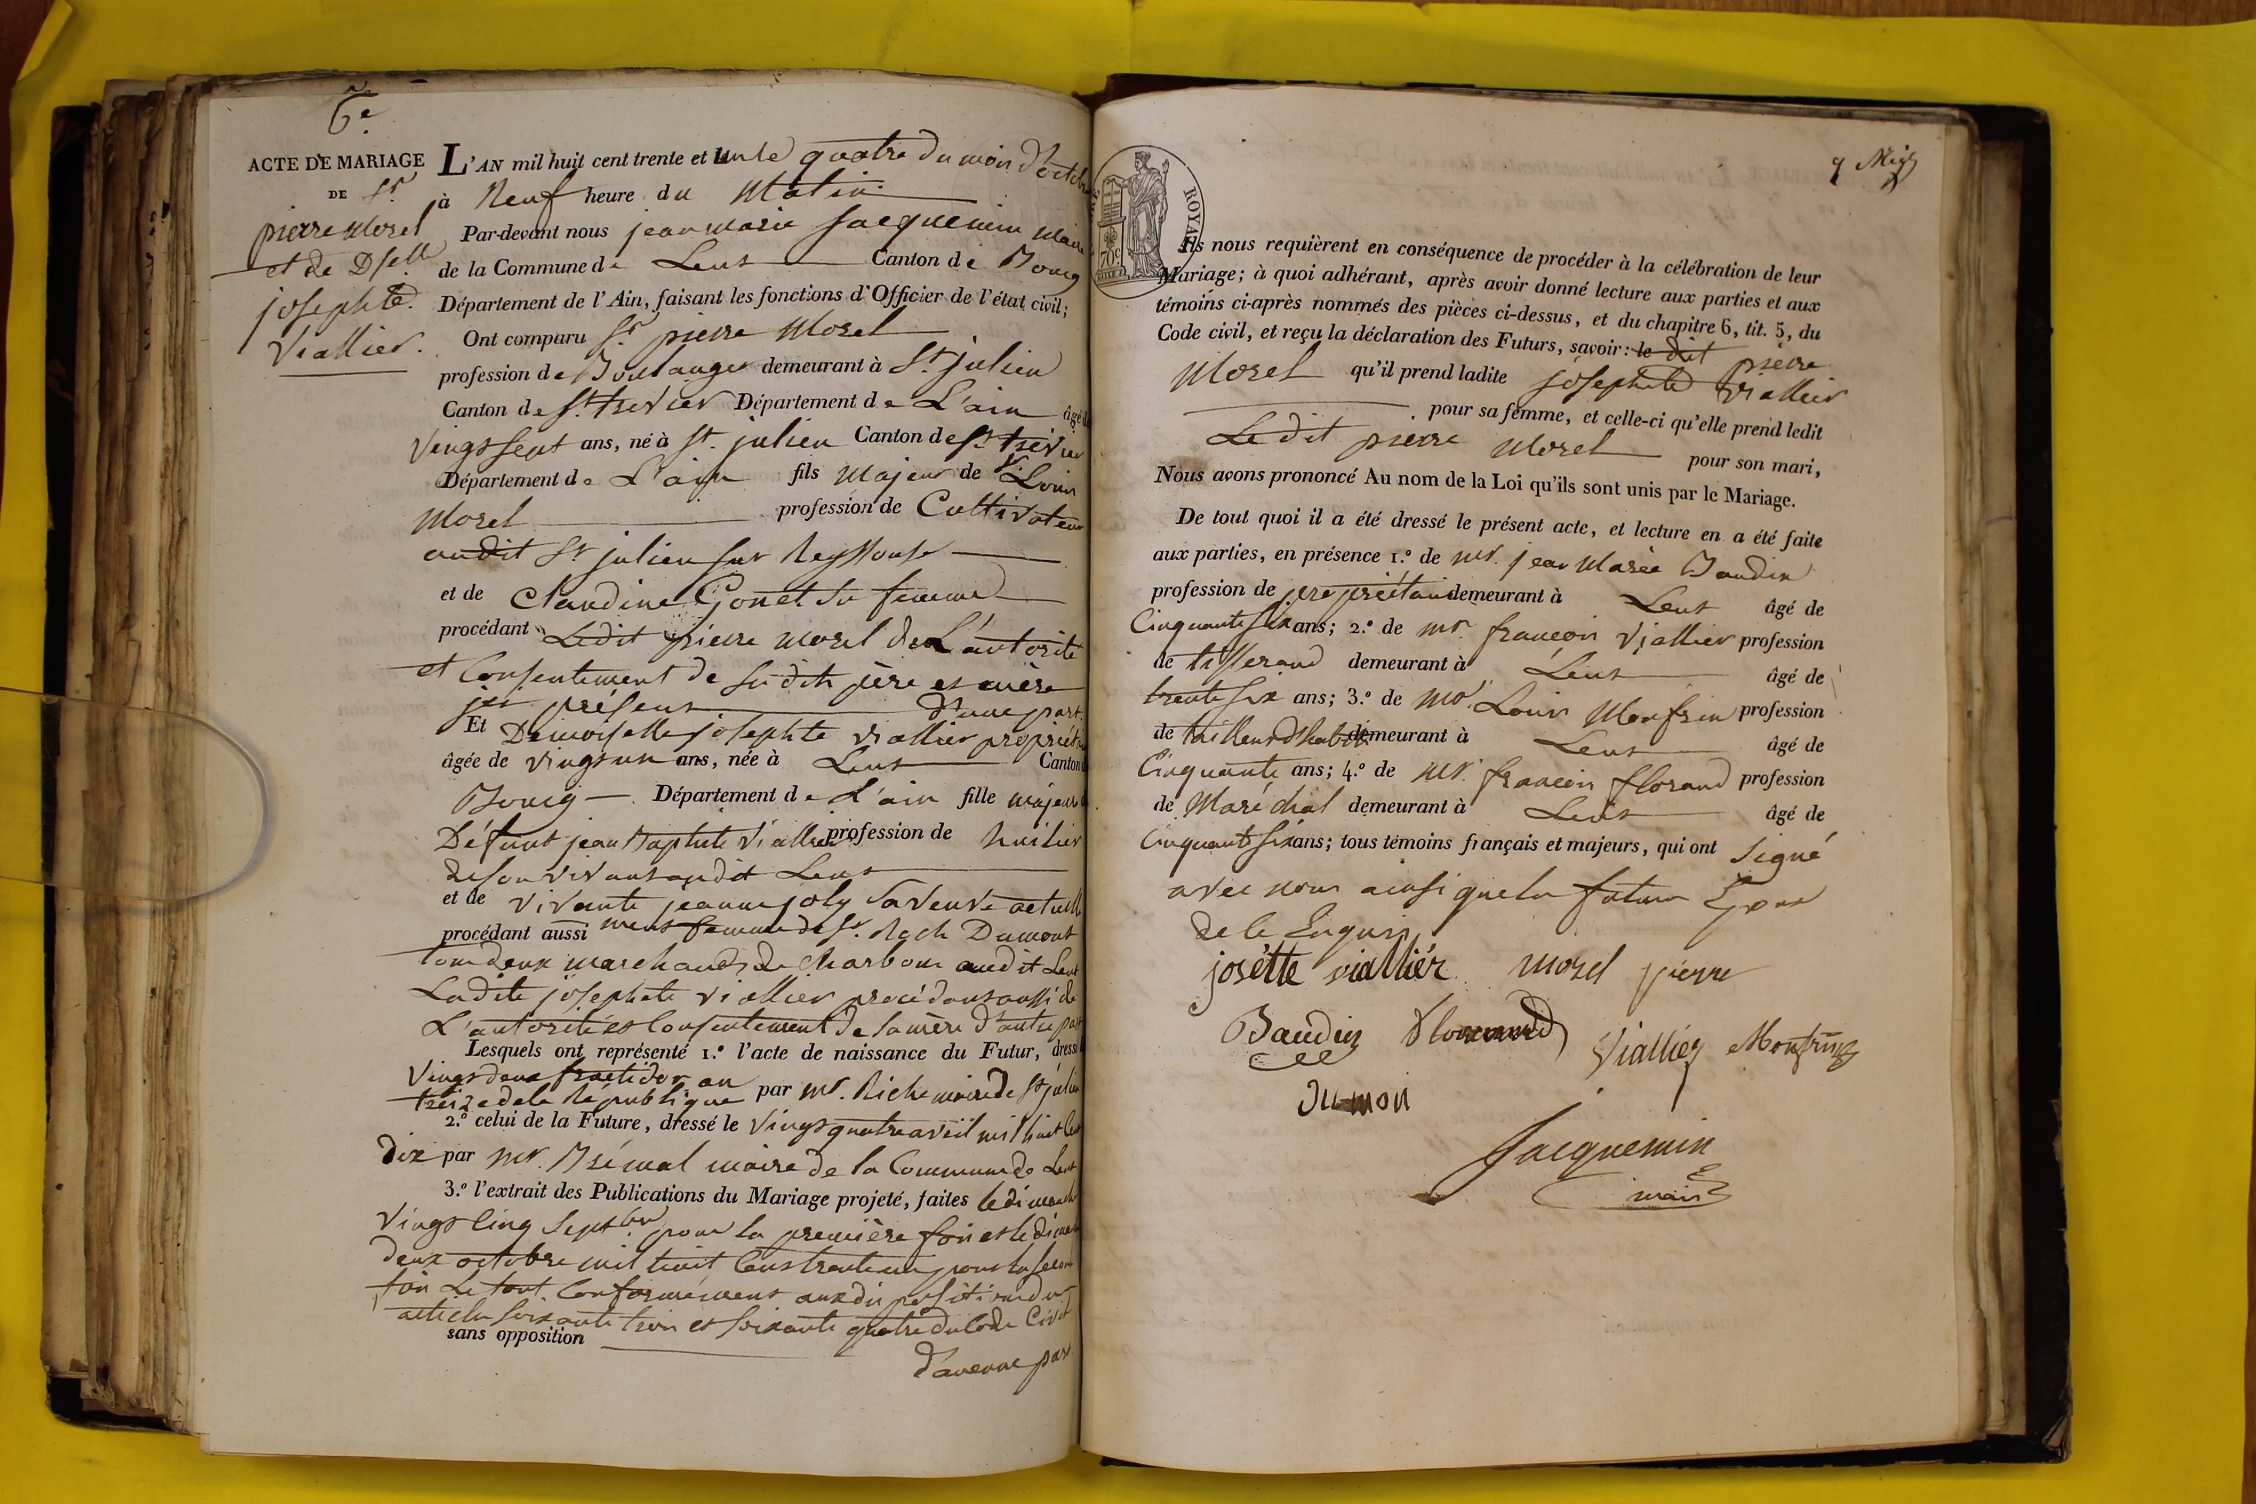 6e
ACTE DE MARIAGE
DE Sr
pierre Morel
et de Dselle
josephte
Viallier.
L'AN mil huit cent trente et un le quatre du mois d'octobre
à Neuf heure du Matin
Par-devant nous jean marie Jacquemin Maire
de la Commune de Lent Canton de Bourg
Département de l'Ain, faisant les fonctions d'Officier de l'état civil;
Ont comparu Sr pierre Morel
profession de Boulanger demeurant à St julien
Canton de St trivier Département de L'ain âgé de
vingt sept ans, né à St. julien Canton de St trivier
Département de L'ain fils Majeur de Sr Louis
Morel profession de Cultivateur
audit St julien sur Reyssouse
et de Claudine Gonet sa femme
procédant Ledit pierre Morel de L'autorité
et Consentement de sesdits père et mère
ici présent d'une part.
Et Demoiselle josephte Viallier propriétaire
âgée de vingt un ans, née à Lent Canton
Bourg Département de L'ain fille majeure
Défunt jean Baptiste Viallier profession de huilier
de son vivant audit Lent
et de vivante jeanne joly sa veuve actuelle
procédant aussi ment femme de Sr. Roch Dumont
tous deux marchands de Charbon audit Lent
Ladite josephte Viallier procédant aussi de
L'autorité et Consentement de sa mère d'autre part
Lesquels ont représenté 1.º l'acte de naissance du Futur, dressé
vingt deux fructidor an
treize de la République par mr. Riche maire de St julien
2.º celui de la Future, dressé le vingt quatre avril mil huit Cent
dix par mr. Brémal maire de la Commune de Lent
3.º l'extrait des Publications du Mariage projeté, faites le dimanche
vingt Cinq Septbre pour la première fois et le dimanche
deux octobre mil huit Cent trente un pour la seconde
fois Le tout Conformément aux dispositions des
articles soixante trois et soixante quatre du Code Civil
sans opposition
d'aucune part
ROYAL
70c
Ils nous requièrent en conséquence de procéder à la célébration de leur
Mariage; à quoi adhérant, après avoir donné lecture aux parties et aux
témoins ci-après nommés des pièces ci-dessus, et du chapitre 6, tit. 5, du
Code civil, et reçu la déclaration des Futurs, savoir: le dit pierre
Morel qu'il prend ladite josephte Viallier
pour sa femme, et celle-ci qu'elle prend ledit
Le dit pierre Morel pour son mari,
Nous avons prononcé Au nom de la Loi qu'ils sont unis par le Mariage.
De tout quoi il a été dressé le présent acte, et lecture en a été faite
aux parties, en présence 1.º de mr. jean Marie Baudin
profession de propriétaire demeurant à Lent âgé de
Cinquante six ans; 2.º de mr. françois Viallier profession
de tisserand demeurant à Lent âgé de
trente six ans; 3.º de mr. Louis Monfrin profession
de tailleur d'habits demeurant à Lent âgé de
Cinquante ans; 4.º de mr. françois florand profession
de Maréchal demeurant à Lent âgé de
Cinquante six ans; tous témoins français et majeurs, qui ont signé
avec nous ainsi que les futurs Époux
de ce Enquis
josètte vialliér Morel pierre
Baudin Viallier Monfrin
Dumon
Jacquemin
maire